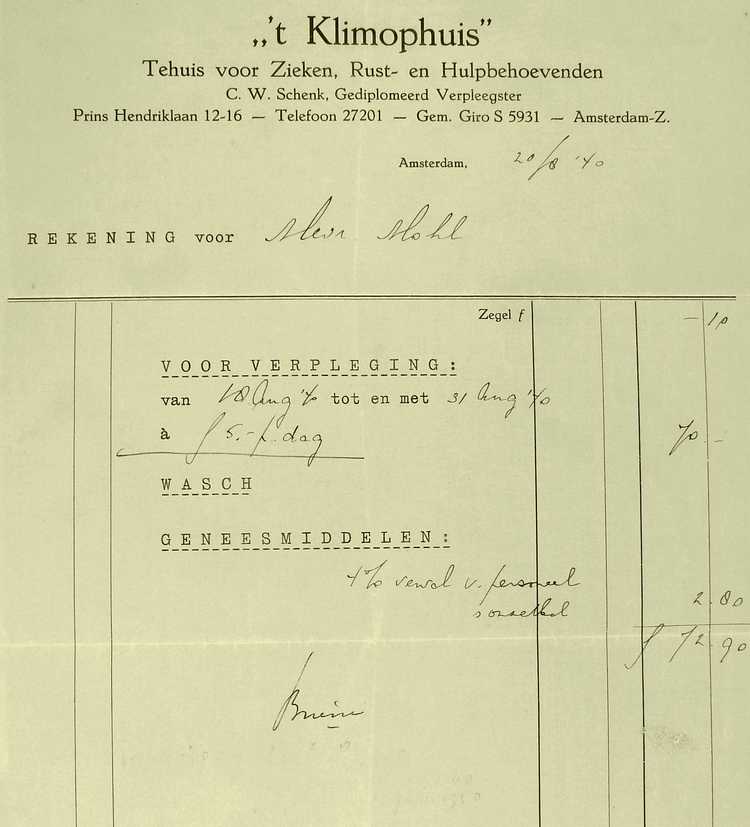 „'t Klimophuis”
Tehuis voor Zieken, Rust- en Hulpbehoevenden
C. W. Schenk, Gediplomeerd Verpleegster
Prins Hendriklaan 12-16 — Telefoon 27201 — Gem. Giro S 5931 — Amsterdam-Z.
Amsterdam, 20/8 '40
REKENING voor Mevr Mohl
Zegel f — 10
VOOR VERPLEGING:
van 18 Aug '40 tot en met 31 Aug '40
à f 5.- p. dag 70 -
WASCH
GENEESMIDDELEN:
4% v. personeel
2.80
f 72.90